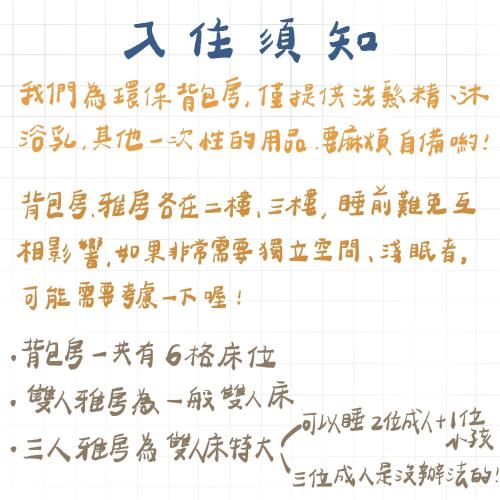 入住須知
我們為環保背包房,僅提供洗髮精、沐
浴乳,其他一次性的用品,要麻煩自備喲!
背包房、雅房各在二樓、三樓,睡前難免互
相影響,如果非常需要獨立空間、淺眠者,
可能需要考慮一下喔!
•背包房一共有6格床位
•雙人雅房為一般雙人床
•三人雅房為雙人床特大
可以睡2位成人+1位
小孩
三位成人是沒辦法的!